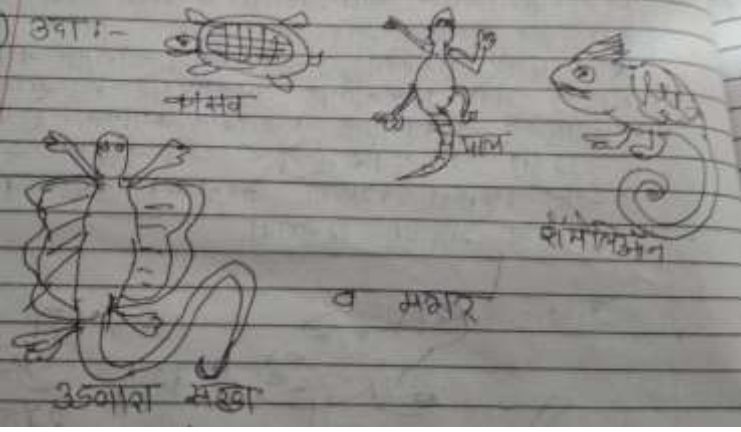 उदा :-
कासव
पाल
शॅमेलिऑन
व मगर
उडणारा सरडा